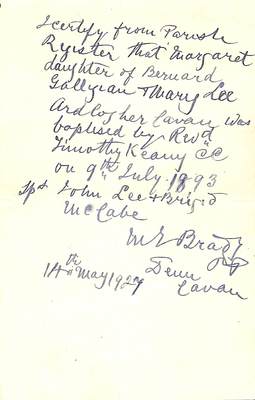 I certify from Parish
Register that Margaret
daughter of Bernard
Gallgian & Mary Lee
Ardlogher Cavan was
baptised by Revd
Timothy Keany CC
on 9th July 1893
Sps John Lee & Brigid
McCabe
Brady PP
Denn
14th May 1927 Cavan